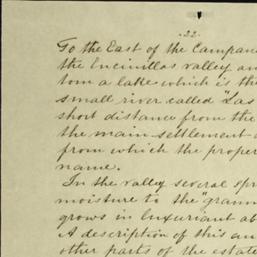 22.
To the East of the Campana
the Encinillas valley an
tom a lake which is the
small river called "Las
short distance from the
the main settlement
from which the proper
name.
In the valley several spr
moisture to the "gramm
grows in luxuriant ab
A description of this an
other parts of the estate